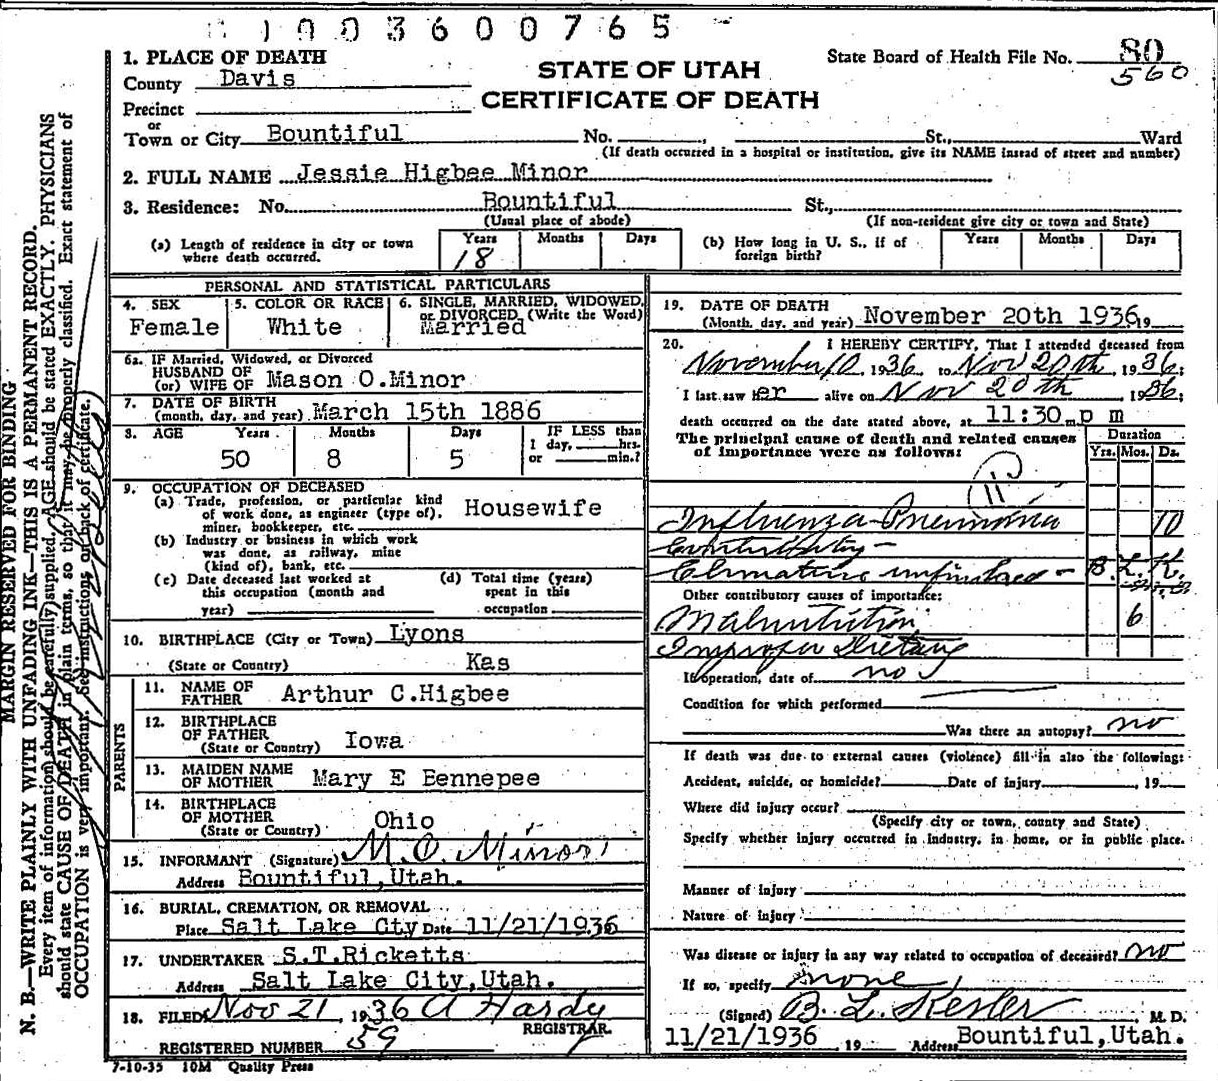 1003600765
1. PLACE OF DEATH
County Davis
Precinct
or
Town or City Bountiful No. , St., Ward
(If death occurred in a hospital or institution, give its NAME instead of street and number)
STATE OF UTAH
CERTIFICATE OF DEATH
State Board of Health File No. 80
560
2. FULL NAME Jessie Higbee Minor
3. Residence: No. Bountiful St.,
(Usual place of abode) (If non-resident give city or town and State)
(a) Length of residence in city or town where death occurred. Years 18 Months Days
(b) How long in U. S., if of foreign birth? Years Months Days
PERSONAL AND STATISTICAL PARTICULARS
4. SEX Female
5. COLOR OR RACE White
6. SINGLE, MARRIED, WIDOWED, or DIVORCED (Write the Word) Married
6a. IF Married, Widowed, or Divorced
HUSBAND OF
(or) WIFE OF Mason O.Minor
7. DATE OF BIRTH
(month, day, and year) March 15th 1886
8. AGE Years 50 Months 8 Days 5
IF LESS than
1 day, hrs.
or min.?
9. OCCUPATION OF DECEASED
(a) Trade, profession, or particular kind
of work done, as engineer (type of),
miner, bookkeeper, etc. Housewife
(b) Industry or business in which work
was done, as railway, mine
(kind of), bank, etc.
(c) Date deceased last worked at
this occupation (month and
year)
(d) Total time (years)
spent in this
occupation
10. BIRTHPLACE (City or Town) Lyons
(State or Country) Kas
PARENTS
11. NAME OF
FATHER Arthur C.Higbee
12. BIRTHPLACE
OF FATHER
(State or Country) Iowa
13. MAIDEN NAME
OF MOTHER Mary E Bennepee
14. BIRTHPLACE
OF MOTHER
(State or Country) Ohio
15. INFORMANT (Signature) M. O. Minor
Address Bountiful,Utah.
16. BURIAL, CREMATION, OR REMOVAL
Place Salt Lake Cty Date 11/21/1936
17. UNDERTAKER S.T.Ricketts
Address Salt Lake City,Utah.
18. FILED Nov 21 , 1936 A Hardy
REGISTRAR.
REGISTERED NUMBER 59
7-10-35 10M Quality Press
19. DATE OF DEATH
(Month, day, and year) November 20th 1936 19
20. I HEREBY CERTIFY, That I attended deceased from
November 10, 1936 to Nov 20th, 1936;
I last saw her alive on Nov 20th, 1936;
death occurred on the date stated above, at 11:30 m. p m
The principal cause of death and related causes
of importance were as follows:
Duration
Yrs. Mos. Ds.
Influenza-Pneumonia 10
Contributory -
B. L. K.
Other contributory causes of importance:
Malnutrition 6
Improper Dietary
If operation, date of no
Condition for which performed
Was there an autopsy? no
If death was due to external causes (violence) fill in also the following:
Accident, suicide, or homicide? Date of injury , 19
Where did injury occur?
(Specify city or town, county and State)
Specify whether injury occurred in industry, in home, or in public place.
Manner of injury
Nature of injury
Was disease or injury in any way related to occupation of deceased? no
If so, specify none
(Signed) B. L. Kesler, M. D.
11/21/1936 , 19 Address Bountiful,Utah.
MARGIN RESERVED FOR BINDING
N. B.—WRITE PLAINLY WITH UNFADING INK—THIS IS A PERMANENT RECORD.
Every item of information should be carefully supplied. AGE should be stated EXACTLY. PHYSICIANS
should state CAUSE OF DEATH in plain terms, so that it may be properly classified. Exact statement of
OCCUPATION is very important. See instructions on back of certificate.